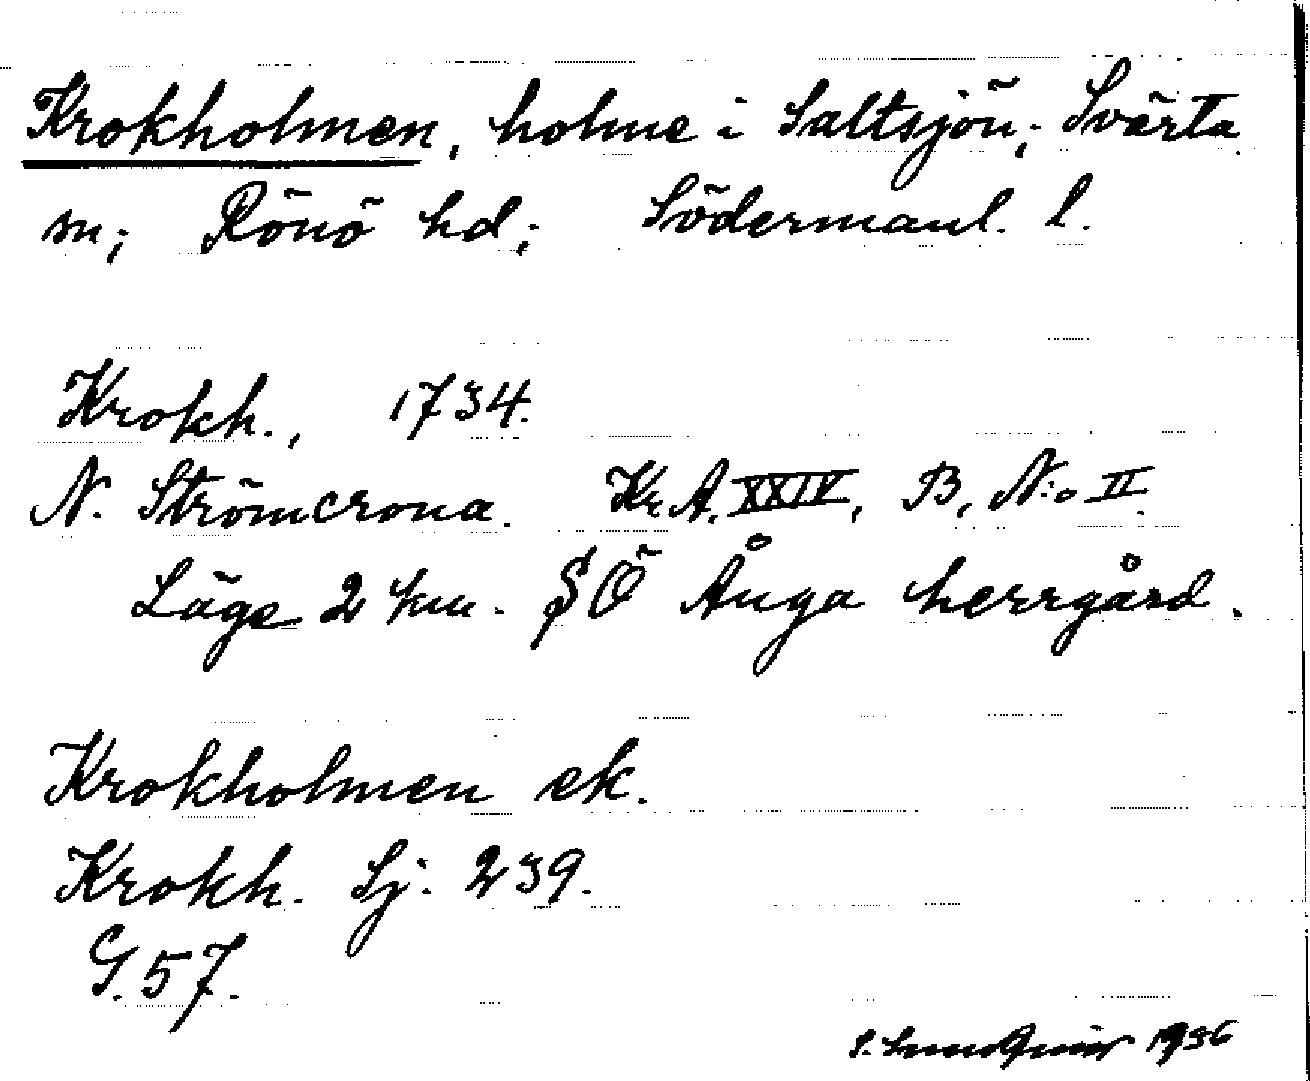 Krokholmen, holme i Saltsjön; Svärta
sn; Rönö hd; Södermanl. l.
Krokh., 1734.
N. Strömcrona. Kr.A. XXIV, B, N:o II.
Läge 2 km. SÖ Ånga herrgård.
Krokholmen ek.
Krokh. Sj. 239.
G. 57.
S. 1936